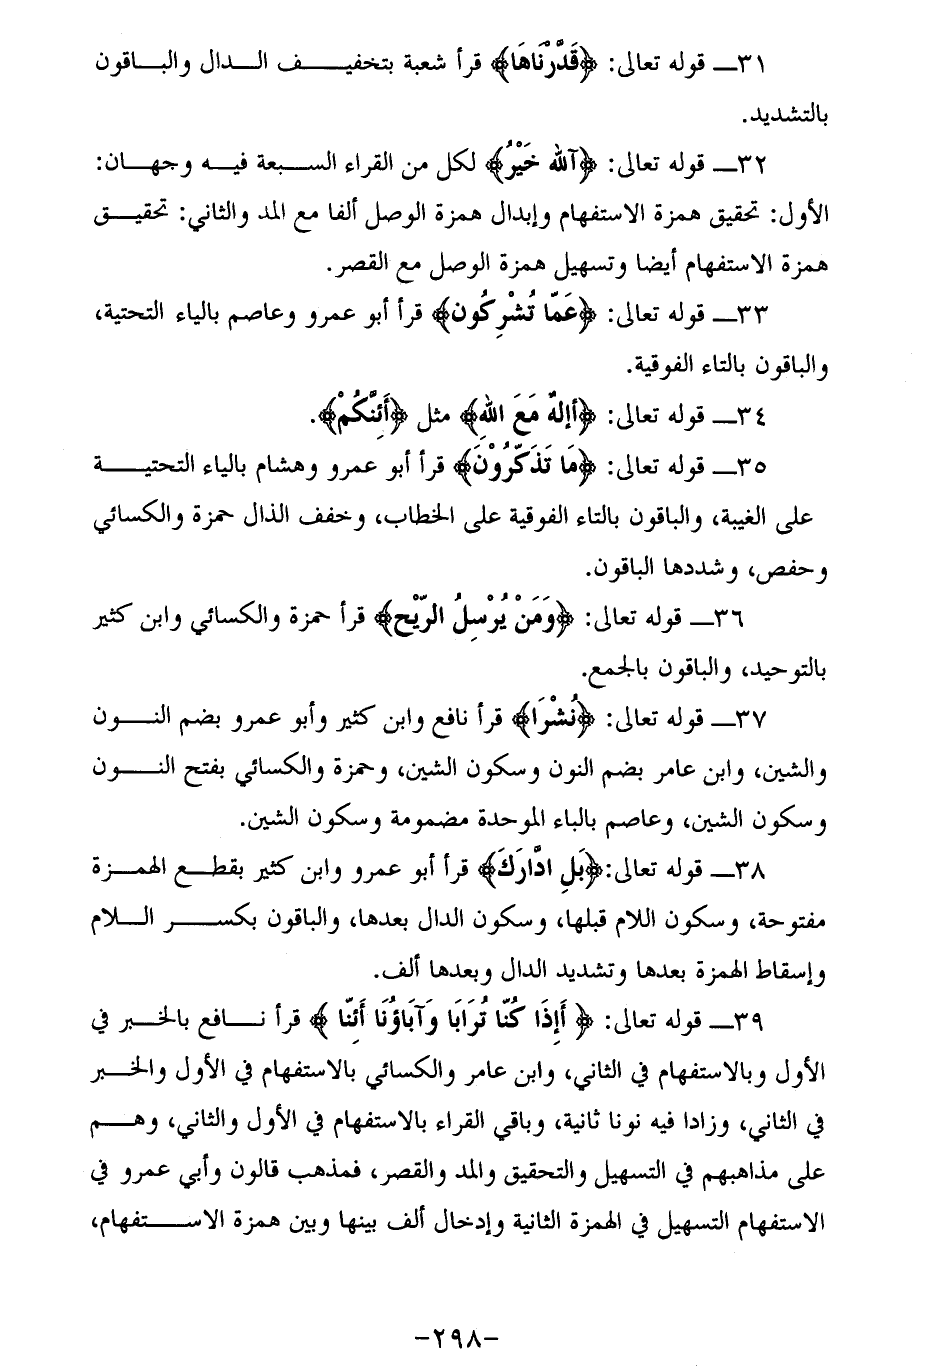 ٣١ــ قوله تعالى: ﴿قَدَّرْنَاهَا﴾ قرأ شعبة بتخفيف الدال والباقون
بالتشديد.
٣٢ــ قوله تعالى: ﴿آلله خَيْرُ﴾ لكل من القراء السبعة فيه وجهان:
الأول: تحقيق همزة الاستفهام وإبدال همزة الوصل ألفا مع المد والثاني: تحقيق
همزة الاستفهام أيضا وتسهيل همزة الوصل مع القصر.
٣٣ــ قوله تعالى: ﴿عَمّا تُشْرِكُون﴾ قرأ أبو عمرو وعاصم بالياء التحتية،
والباقون بالتاء الفوقية.
٣٤ــ قوله تعالى: ﴿أإلهٌ مَعَ اللهِ﴾ مثل ﴿أَئِنَّكُمْ﴾.
٣٥ــ قوله تعالى: ﴿مَا تَذَكّرُوْنَ﴾ قرأ أبو عمرو وهشام بالياء التحتية
على الغيبة، والباقون بالتاء الفوقية على الخطاب، وخفف الذال حمزة والكسائي
وحفص، وشددها الباقون.
٣٦ــ قوله تعالى: ﴿وَمَنْ يُرْسِلُ الرِّيْح﴾ قرأ حمزة والكسائي وابن كثير
بالتوحيد، والباقون بالجمع.
٣٧ــ قوله تعالى: ﴿نُشْرَا﴾ قرأ نافع وابن كثير وأبو عمرو بضم النون
والشين، وابن عامر بضم النون وسكون الشين، وحمزة والكسائي بفتح النون
وسكون الشين، وعاصم بالباء الموحدة مضمومة وسكون الشين.
٣٨ــ قوله تعالى:﴿بَلِ ادَّارَكَ﴾ قرأ أبو عمرو وابن كثير بقطع الهمزة
مفتوحة، وسكون اللام قبلها، وسكون الدال بعدها، والباقون بكسر اللام
وإسقاط الهمزة بعدها وتشديد الدال وبعدها ألف.
٣٩ــ قوله تعالى: ﴿ أَإِذَا كُنّا تُرَابَا وَآبَاؤُنَا أَئِنّا ﴾ قرأ نافع بالخبر في
الأول وبالاستفهام في الثاني، وابن عامر والكسائي بالاستفهام في الأول والخبر
في الثاني، وزادا فيه نونا ثانية، وباقي القراء بالاستفهام في الأول والثاني، وهم
على مذاهبهم في التسهيل والتحقيق والمد والقصر، فمذهب قالون وأبي عمرو في
الاستفهام التسهيل في الهمزة الثانية وإدخال ألف بينها وبين همزة الاستفهام،
-٢٩٨-